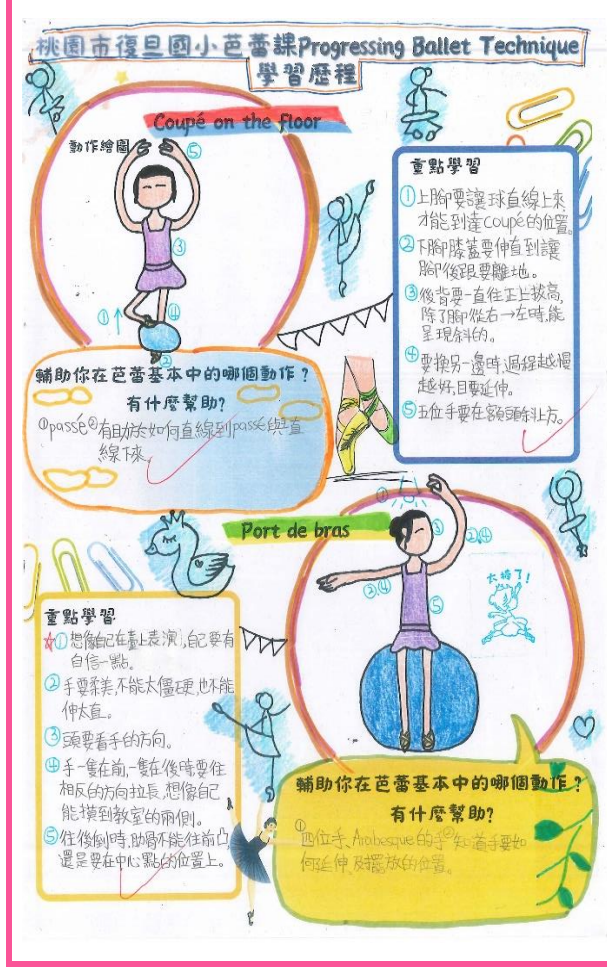 桃園市復旦國小芭蕾課Progressing Ballet Technique
學習歷程
Coupé on the floor
動作繪圖
⑤
③
①
④
②
重點學習
①上腳要讓球直線上來
才能到達coupé的位置。
②下腳膝蓋要伸直到讓
腳後跟要離地。
③後背要一直往正上拔高,
除了腳從右→左時,能
呈現斜的。
④要換另一邊時,過程越慢
越好,且要延伸。
⑤五位手要在額頭斜上方。
輔助你在芭蕾基本中的哪個動作?
有什麼幫助?
①passé②有助於如何直線到passé與直
線下來
Port de bras
①
③
②,④
②,④
⑤
太棒了!
重點學習
☆①想像自己在臺上表演,自己要有
自信一點。
②手要柔美,不能太僵硬,也不能
伸太直。
③頭要看手的方向。
④手一隻在前,一隻在後時,要往
相反的方向拉長,想像自己
能摸到教室的兩側。
⑤往後倒時,肋骨不能往前凸
還是要在中心點的位置上。
輔助你在芭蕾基本中的哪個動作?
有什麼幫助?
①四位手、Arabesque的手②知道手要如
何延伸及擺放的位置。